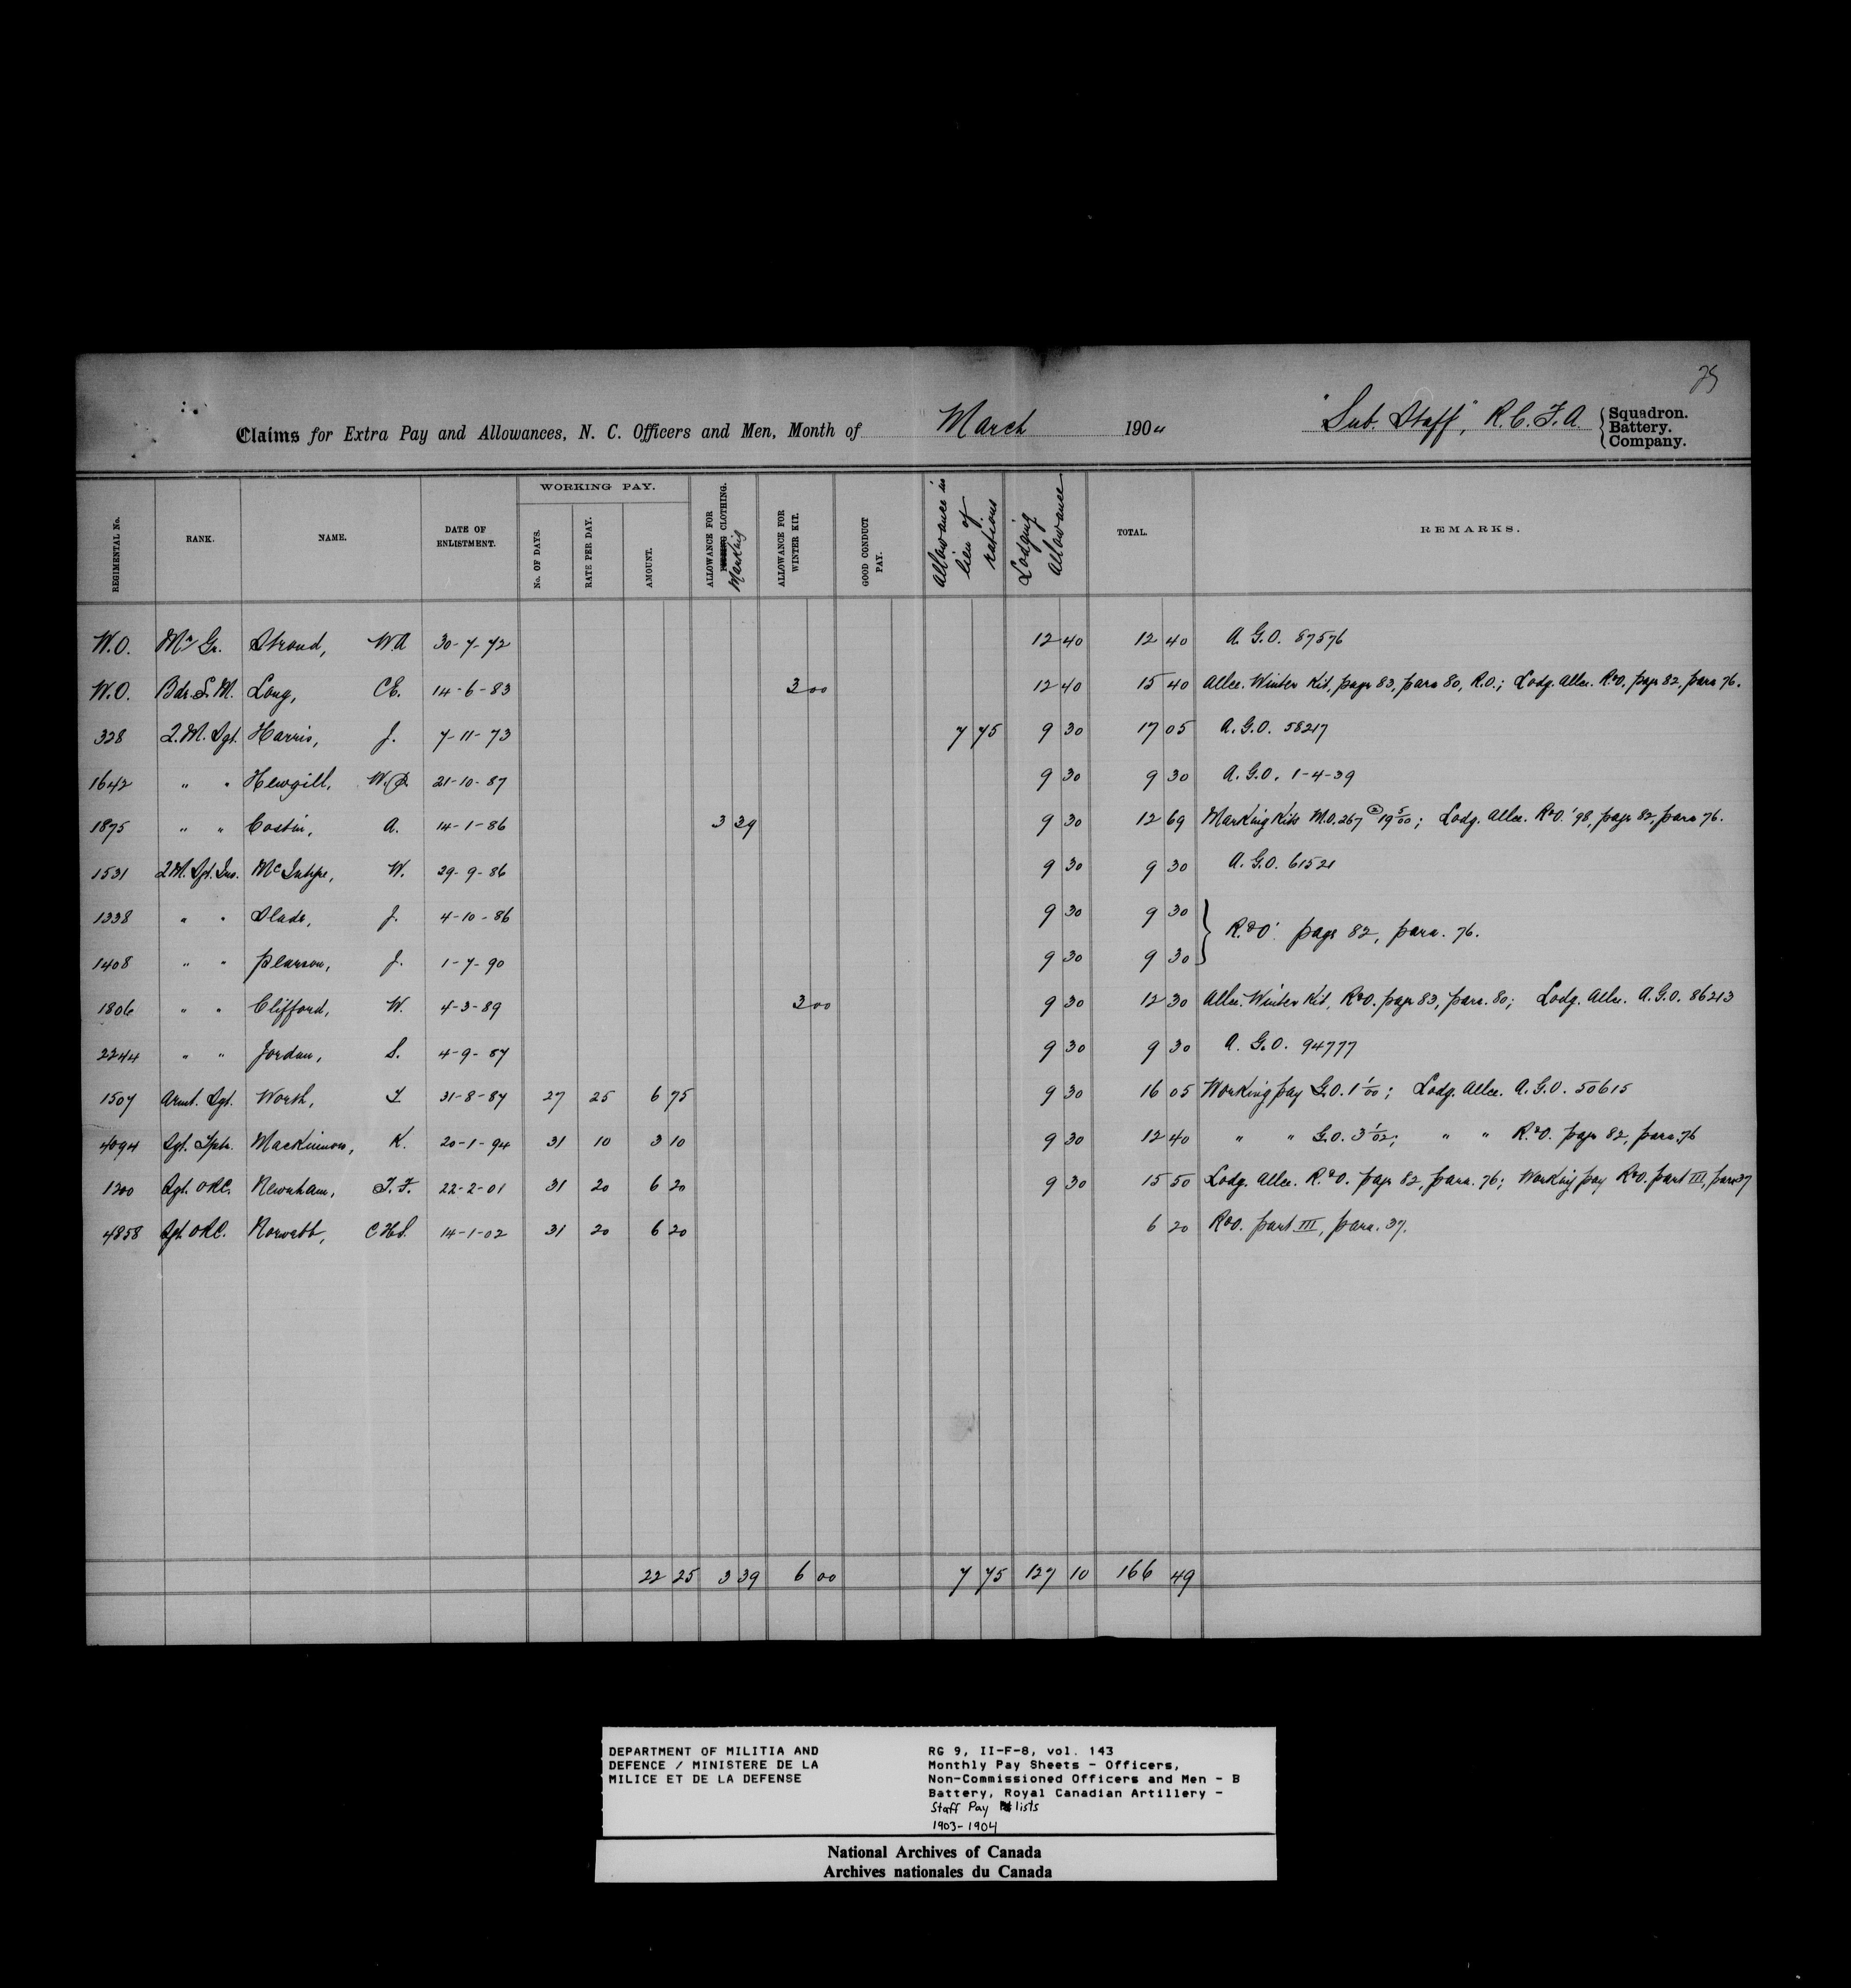 75
Claims for Extra Pay and Allowances, N. C. Officers and Men, Month of March 1904 "Sub. Staff", R.C.F.A. Squadron. Battery. Company.
REGIMENTAL No. RANK. NAME. DATE OF ENLISTMENT. WORKING PAY. No. OF DAYS. RATE PER DAY. AMOUNT. ALLOWANCE FOR CLOTHING. Marking ALLOWANCE FOR WINTER KIT. GOOD CONDUCT PAY. Allowance in lieu of rations Lodging Allowance TOTAL. REMARKS.
W.O. Mr Gr. Stroud, W.A 30-7-72 12 40 12 40 A.G.O. 87576
W.O. Bdr. S.M. Long, C.E. 14-6-83 3 00 12 40 15 40 Allce. Winter Kit, page 83, para 80, R.O.; Lodg. Allce. R&O, page 82, para 76.
328 Q.M. Sgt. Harris, J. 7-11-73 7 75 9 30 17 05 A.G.O. 58217
1642 " " Hewgill, W. 21-10-87 9 30 9 30 A.G.O. 1-4-39
1875 " " Costin, A. 14-1-86 3 39 9 30 12 69 Marking Kits M.O. 267 19 5/00; Lodg. Allce. R&O. '98, page 82, para 76.
1531 Q.M. Sgt. Ins. McIntyre, W. 29-9-86 9 30 9 30 A.G.O. 61521
1338 " " Slade, J. 4-10-86 9 30 9 30
R&O. page 82, para. 76.
1408 " " Pearson, J. 1-7-90 9 30 9 30
1806 " " Clifford, W. 4-3-89 3 00 9 30 12 30 Allce. Winter Kit, R&O. page 83, para. 80; Lodg. Allce. A.G.O. 86213
2244 " " Jordan, S. 4-9-87 9 30 9 30 A.G.O. 94777
1507 Armt. Sgt. Worth, T. 31-8-87 27 25 6 75 9 30 16 05 Working pay G.O. 1 1/00; Lodg. Allce. A.G.O. 50615
4094 Sgt. Tptr. MacKinnon, K. 20-1-94 31 10 3 10 9 30 12 40 " " G.O. 3 1/02; " " R&O. page 82, para. 76
1200 Sgt. O.R.C. Newnham, T.F. 22-2-01 31 20 6 20 9 30 15 50 Lodg. Allce. R.&O. page 82, para. 76; Working pay R&O. part III, para 37
4858 Sgt. O.R.C. C.H.S. 14-1-02 31 20 6 20 6 20 R&O. part III, para. 37.
22 25 3 39 6 00 7 75 127 10 166 49
DEPARTMENT OF MILITIA AND
DEFENCE / MINISTERE DE LA
MILICE ET DE LA DEFENSE
RG 9, II-F-8, vol. 143
Monthly Pay Sheets - Officers,
Non-Commissioned Officers and Men - B
Battery, Royal Canadian Artillery -
Staff Pay lists
1903-1904
National Archives of Canada
Archives nationales du Canada